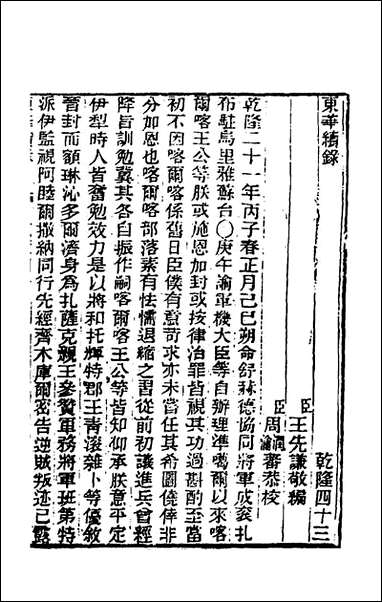 東華續錄
乾隆四十三
臣王先謙敬編
臣周潤蕃恭校
周瀹
乾隆二十一年丙子春正月己巳朔命舒赫德協同將軍成袞扎
布駐烏里雅蘇台〇庚午諭軍機大臣等自辦理準噶爾以來喀
爾喀王公等朕或施恩加封或按律治罪皆視其功過斟酌至當
初不因喀爾喀係舊日臣僕有意苛求亦未嘗任其希圖僥倖非
分加恩也喀爾喀部落素有怯懦退縮之習從前初議進兵曾經
降旨訓勉冀其各自振作嗣喀爾喀王公等皆知仰承朕意平定
伊犁時人皆奮勉效力是以將和托輝特郡王青滾雜卜等優敘
晉封而額琳沁多爾濟身為扎薩克親王參贊軍務將軍班第特
派伊監視阿睦爾撒納同行先經齊木庫爾密告逆賊叛迹已露